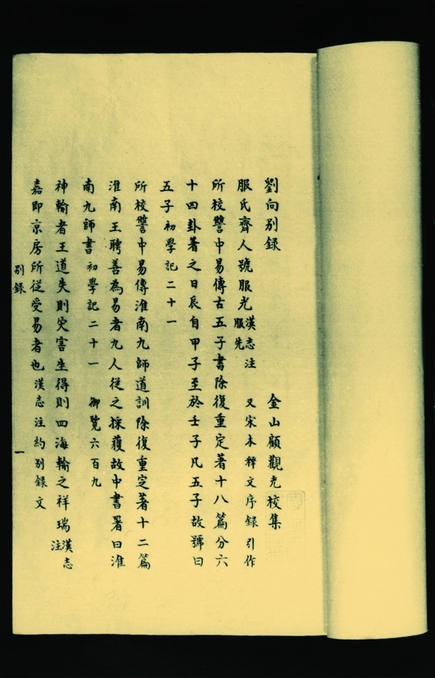 劉向別錄
金山顧觀光校集
服氏齊人號服光漢志注 又宋本釋文序錄引作服先
所校讐中易傳古五子書除復重定著十八篇分六
十四卦著之日辰自甲子至於壬子凡五子故號曰
五子初學記二十一
所校讐中易傳淮南九師道訓除復重定著十二篇
淮南王聘善為易者九人從之採獲故中書署曰淮
南九師書初學記二十一 御覽六百九
神輸者王道失則灾害生得則四海輸之祥瑞漢志注
嘉即京房所從受易者也漢志注約別錄文
別錄 一